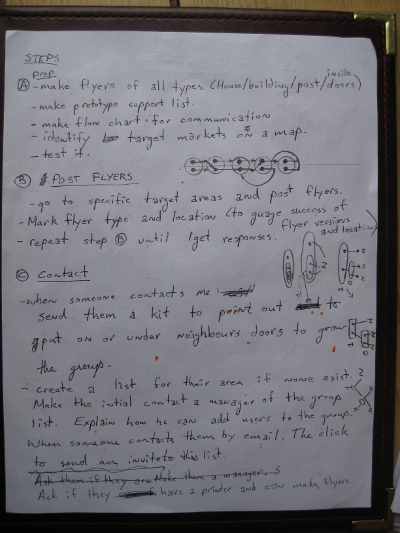 STEPS
PREP
Ⓐ - make flyers of all types. (House/building/post/inside doors)
- make prototype support list.
- make flow chart for communication
- identify target markets on a map.
- test it.
Ⓑ POST FLYERS
- go to specific target areas and post flyers.
- Mark flyer type and location (to guage success of flyer versions and location)
- repeat step Ⓑ until I get responses.
Ⓒ Contact
- when someone contacts me
send them a kit to print out to
put on or under neighbours doors to grow
the group.
- create a list for their area if none exist.
Make the intial contact a manager of the group
list. Explain how he can add users to the group.
When someone contacts them by email. The click
to send an invite to this list.
Ask them if they are Make them a manager.
Ask if they have a printer and can make flyers